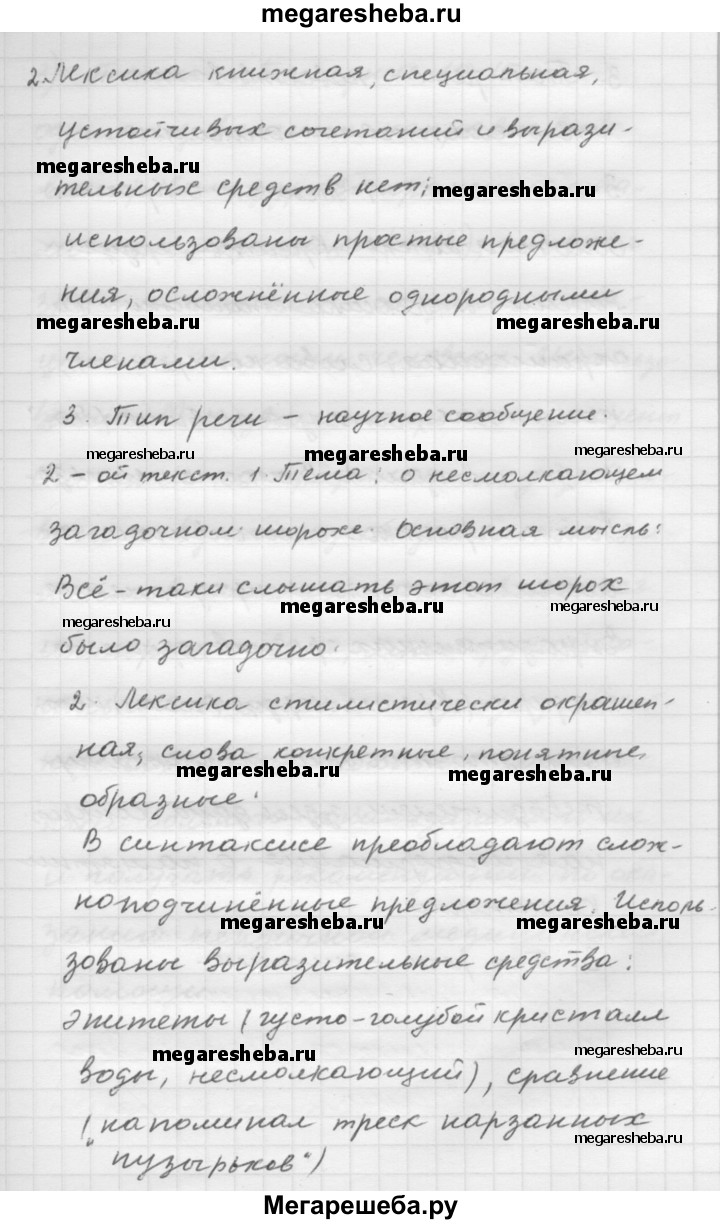 megaresheba.ru
2. Лексика книжная, специальная,
устойчивых сочетаний и вырази-
megaresheba.ru
тельных средств нет;
megaresheba.ru
использованы простые предложе-
ния, осложнённые однородными
megaresheba.ru
megaresheba.ru
членами.
3. Тип речи – научное сообщение.
megaresheba.ru
megaresheba.ru
megaresheba.ru
2-ой текст. 1. Тема: о несмолкающем
загадочном шорохе. Основная мысль:
Всё-таки слышать этот шорох
megaresheba.ru
megaresheba.ru
было загадочно.
2. Лексика стилистически окрашен-
ная, слова конкретные, понятные,
megaresheba.ru
megaresheba.ru
образные.
В синтаксисе преобладают слож-
ноподчинённые предложения. Исполь-
megaresheba.ru
megaresheba.ru
зованы выразительные средства:
эпитеты (густо-голубой кристалл
megaresheba.ru
megaresheba.ru
воды, несмолкающий), сравнение
("напоминал треск нарзанных
megaresheba.ru
пузырьков")
Мегарешеба.ру